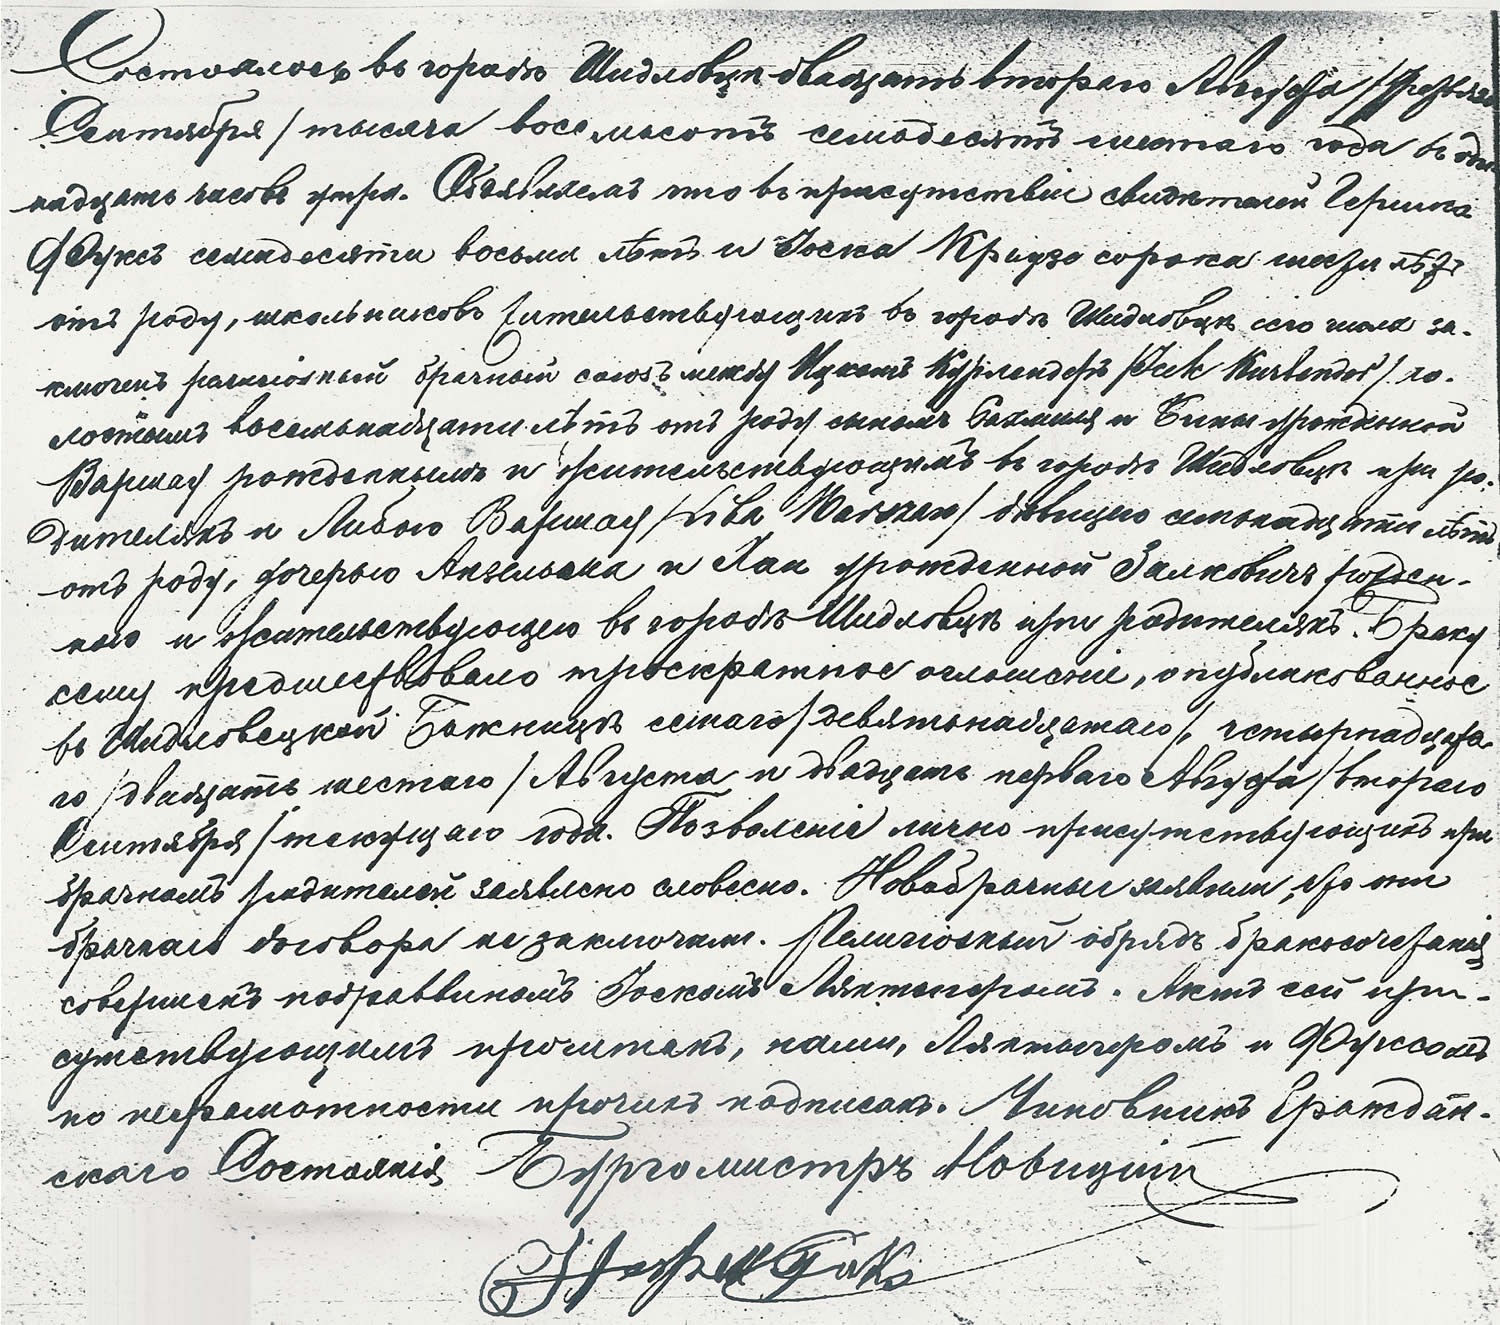 Состоялось въ городѣ Шидловцѣ двадцать втораго Августа /третьяго
Сентября/ тысяча восемьсотъ семьдесятъ шестаго года въ один
надцать часовъ утра. Объявляемъ что въ присутствіи свидѣтелей Гершка
Фукса семидесяти восьми лѣтъ и Іоска Крауза сорока шести лѣтъ
отъ роду, школьниковъ жительствующихъ въ городѣ Шидловцѣ сего числа за-
ключенъ религіозный брачный союзъ между Ицкомъ Курлендеръ /Icek Kurlender/ хо-
лостымъ восемьнадцати лѣтъ отъ роду сыномъ и Бины урожденной
Варшау рожденнымъ и жительствующимъ въ городѣ Шидловцѣ при ро-
дителяхъ и Либою Варшау /Liba Warszau/ дѣвицею семьнадцати лѣтъ
отъ роду, дочерью и Хаи урожденной Залковичъ рожден-
ною и жительствующею въ городѣ Шидловцѣ при родителяхъ. Браку
сему предшествовало троекратное оглашеніе, опубликованное
въ Шидловецкой Божницѣ седьмаго /девятьнадцатаго/, четырнадцата-
го /двадцать шестаго/ Августа и двадцать перваго Августа /втораго
Сентября/ текущаго года. Позволеніе лично присутствующихъ при
брачномъ родителей заявлено словесно. Новобрачные заявили, что они
брачнаго договора не заключали. Религіозный обрядъ бракосочетанія
совершенъ подраввиномъ Іоскомъ Ляхтигеромъ. Актъ сей при-
сутствующимъ прочитанъ, нами, Ляхтигеромъ и Фуксомъ
по неграмотности прочихъ подписанъ. Чиновникъ Граждан-
скаго Состоянія Бургомистръ Новицкій